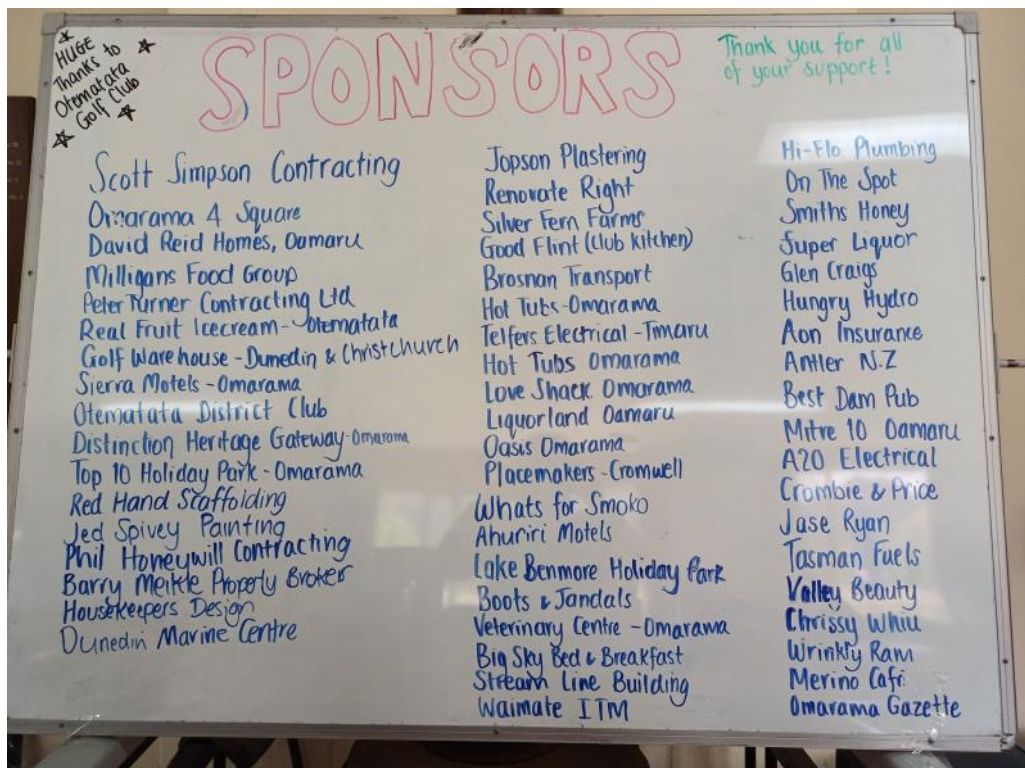 HUGE
Thanks to
Otematata
Golf Club
SPONSORS
Thank you for all
of your support!
Scott Simpson Contracting
Omarama 4 Square
David Reid Homes, Oamaru
Milligans Food Group
Peter Turner Contracting Ltd
Real Fruit Icecream - Otematata
Golf Warehouse - Dunedin & Christchurch
Sierra Motels - Omarama
Otematata District Club
Distinction Heritage Gateway - Omarama
Top 10 Holiday Park - Omarama
Red Hand Scaffolding
Jed Spivey Painting
Phil Honeywill Contracting
Barry Meikle Property Broker
Housekeepers Design
Dunedin Marine Centre
Jopson Plastering
Renovate Right
Silver Fern Farms
Good Flint (Club kitchen)
Brosnan Transport
Hot Tubs - Omarama
Telfers Electrical - Timaru
Hot Tubs Omarama
Love Shack Omarama
Liquorland Oamaru
Oasis Omarama
Placemakers - Cromwell
Whats for Smoko
Ahuriri Motels
Lake Benmore Holiday Park
Boots & Jandals
Veterinary Centre - Omarama
Big Sky Bed & Breakfast
Stream Line Building
Waimate ITM
Hi-Flo Plumbing
On The Spot
Smiths Honey
Super Liquor
Glen Craigs
Hungry Hydro
Aon Insurance
Antler N.Z
Best Dam Pub
Mitre 10 Oamaru
A20 Electrical
Crombie & Price
Jase Ryan
Tasman Fuels
Valley Beauty
Chrissy Whiu
Wrinkly Ram
Merino Cafe
Omarama Gazette